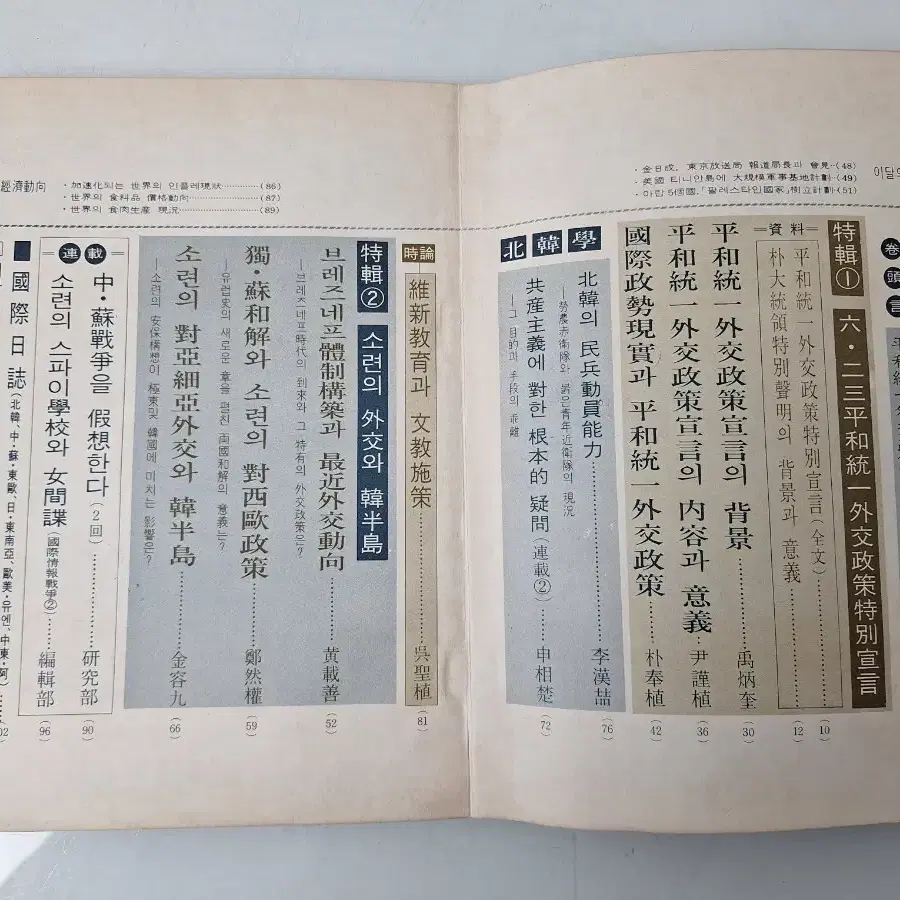 이달의
·金日成, 東京放送局 報道局長과 會見··(48)
·美國 티니안島에 大規模軍事基地計劃··(49)
·아랍 5個國,「팔레스타인國家」樹立計劃(51)
卷頭言
特輯① 六·二三平和統一外交政策特別宣言
=資料=
平和統一外交政策特別宣言(全文)……(10)
朴大統領特別聲明의 背景과 意義……(12)
平和統一外交政策宣言의 背景……禹炳奎(30)
平和統一外交政策宣言의 內容과 意義……尹謹植(36)
國際政勢現實과 平和統一外交政策……朴奉植(42)
北韓學
北韓의 民兵動員能力……李漢喆(76)
—勞農赤衛隊와 붉은靑年近衛隊의 現況
共産主義에 對한 根本的 疑問(連載②)……申相楚(72)
—그 目的과 手段의 乖離
時論
維新敎育과 文敎施策……吳聖植(81)
特輯② 소련의 外交와 韓半島
브레즈네프體制構築과 最近外交動向……黃載善(52)
—브레즈네프時代의 到來와 그 特有의 外交政策은?
獨·蘇和解와 소련의 對西歐政策……鄭然權(59)
—유럽史의 새로운 章을 펼친 兩國和解의 意義는?
소련의 對亞細亞外交와 韓半島……金容九(66)
—소련의 安保構想이 極東및 韓國에 미치는 影響은?
經濟動向
·加速化되는 世界의 인플레現狀…………(86)
·世界의 食料品 價格動向…………(87)
·世界의 食肉生産 現況…………(89)
=連載=
中·蘇戰爭을 假想한다(2回)……硏究部(90)
소련의 스파이學校와 女間諜(國際情報戰爭②)……編輯部(96)
■國際日誌(北韓、中·蘇·東歐、日·東南亞、歐美·유엔、中東·阿)……02